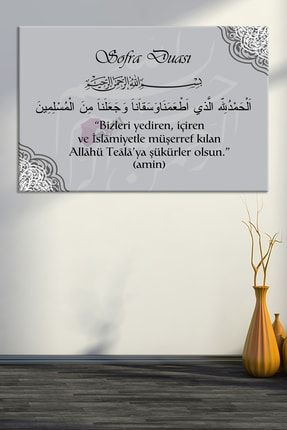 Sofra Duası
بِسْمِ اللهِ الرَّحْمٰنِ الرَّحِيمِ
اَلْحَمْدُ لِلّٰهِ الَّذِي اَطْعَمَنَاوَسَقَانَا وَجَعَلَنَا مِنَ الْمُسْلِمِينَ
“Bizleri yediren, içiren
ve İslâmiyetle müşerref kılan
Allâhü Teâlâ’ya şükürler olsun.”
(amin)